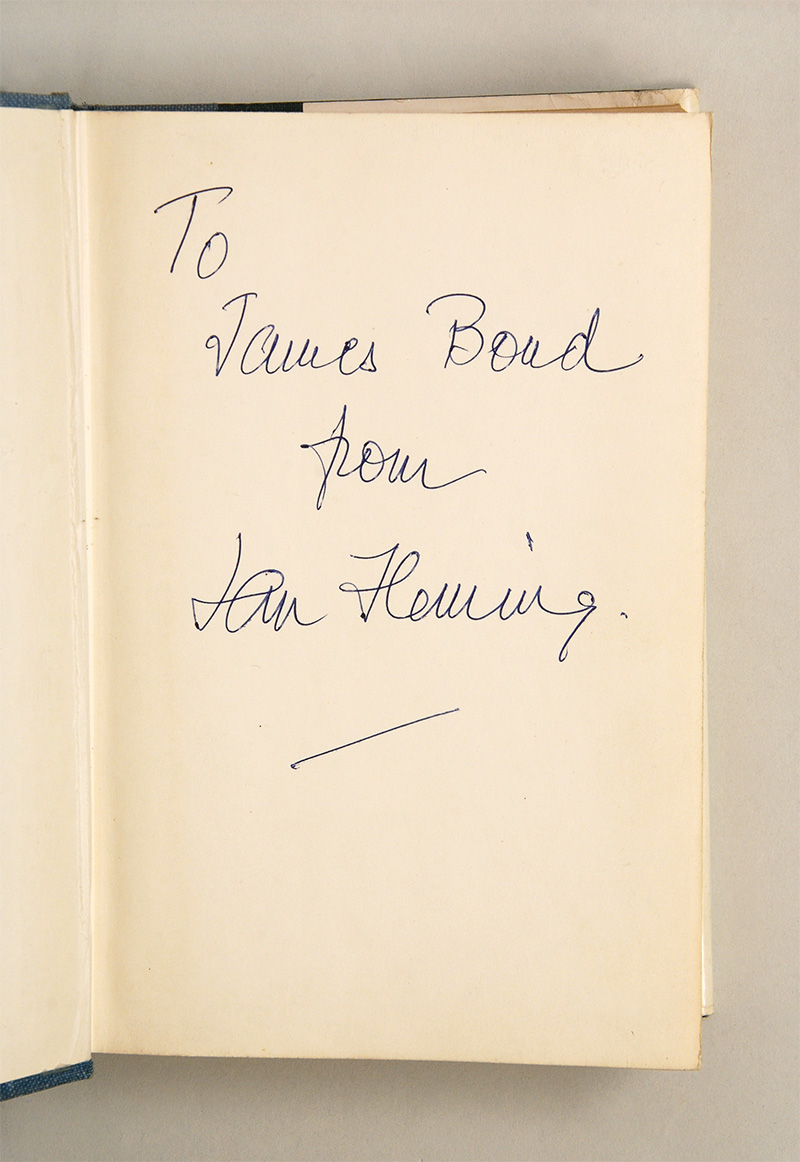 To
James Bond
from
Ian Fleming.